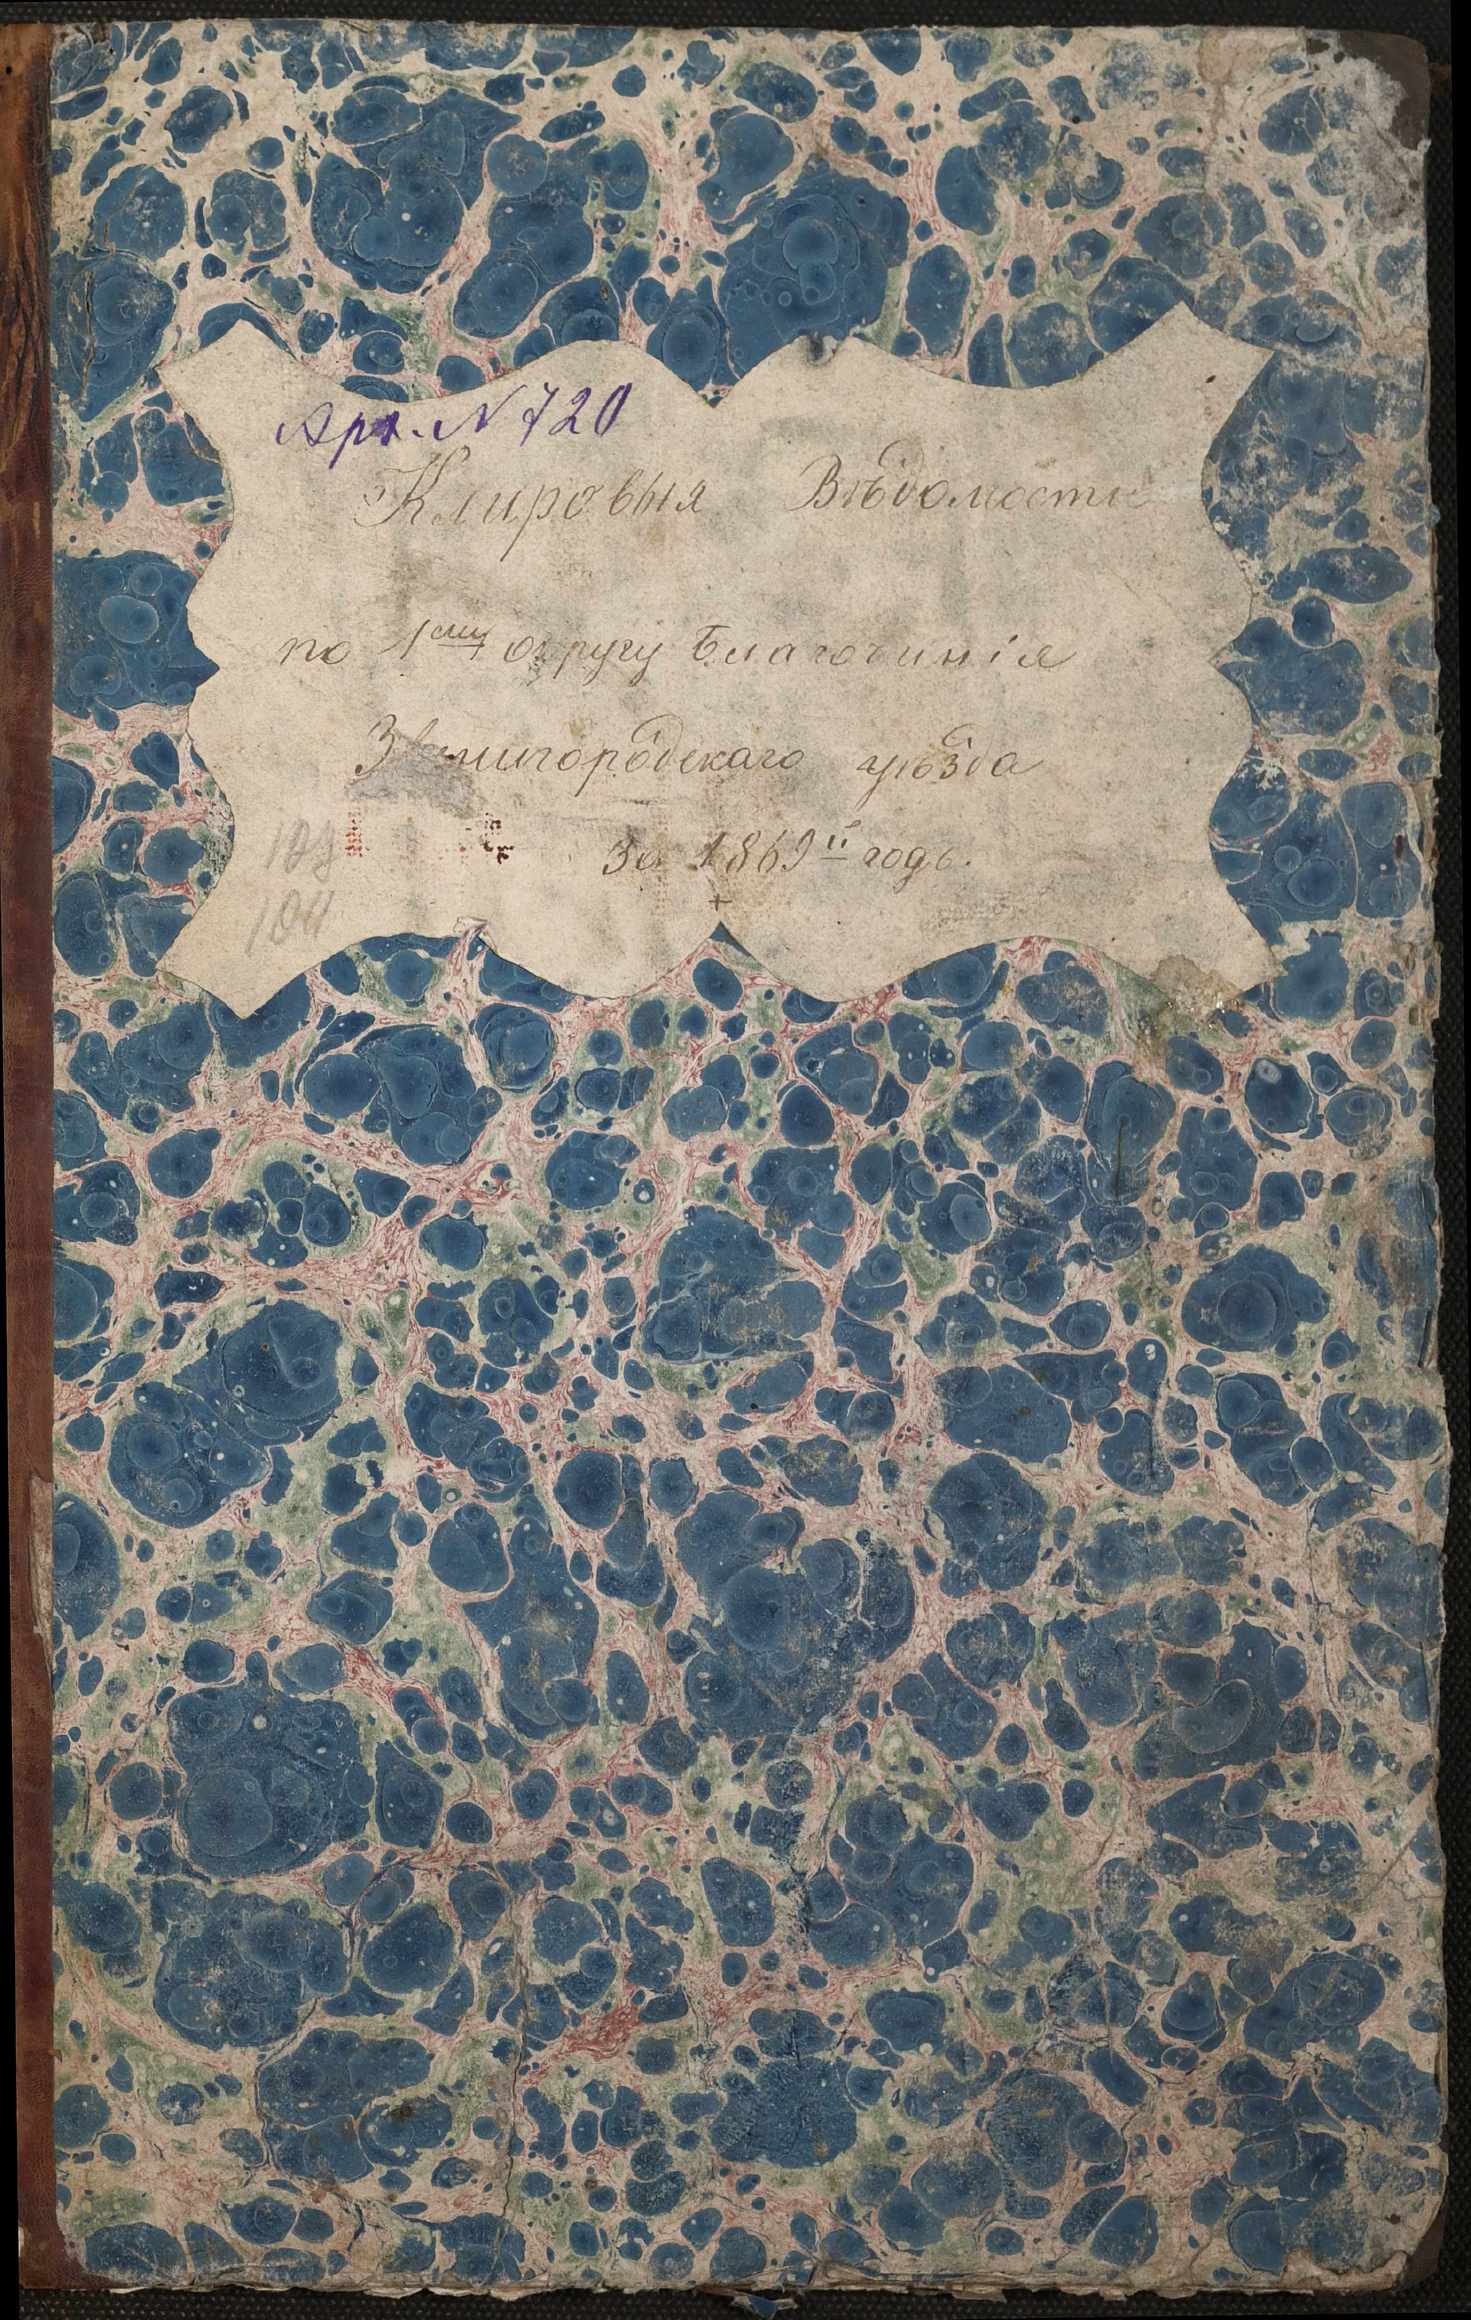 Арх. N 720
Клировыя Вѣдомости
по 1ᵐᵘ округу Благочинія
Звенигородскаго уѣзда
за 1869ᵈ годъ.
104